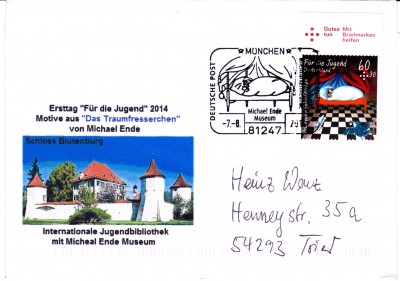 Gutes Mit
tun Briefmarken
helfen
MÜNCHEN
DEUTSCHE POST
Michael Ende
Museum
-7.-8.
81247
Für die Jugend
Deutschland
60
+30
Ersttag "Für die Jugend" 2014
Motive aus "Das Traumfresserchen"
von Michael Ende
Schloss Blutenburg
Internationale Jugendbibliothek
mit Micheal Ende Museum
Heinz Wenz
Henneystr. 35a
54293 Trier